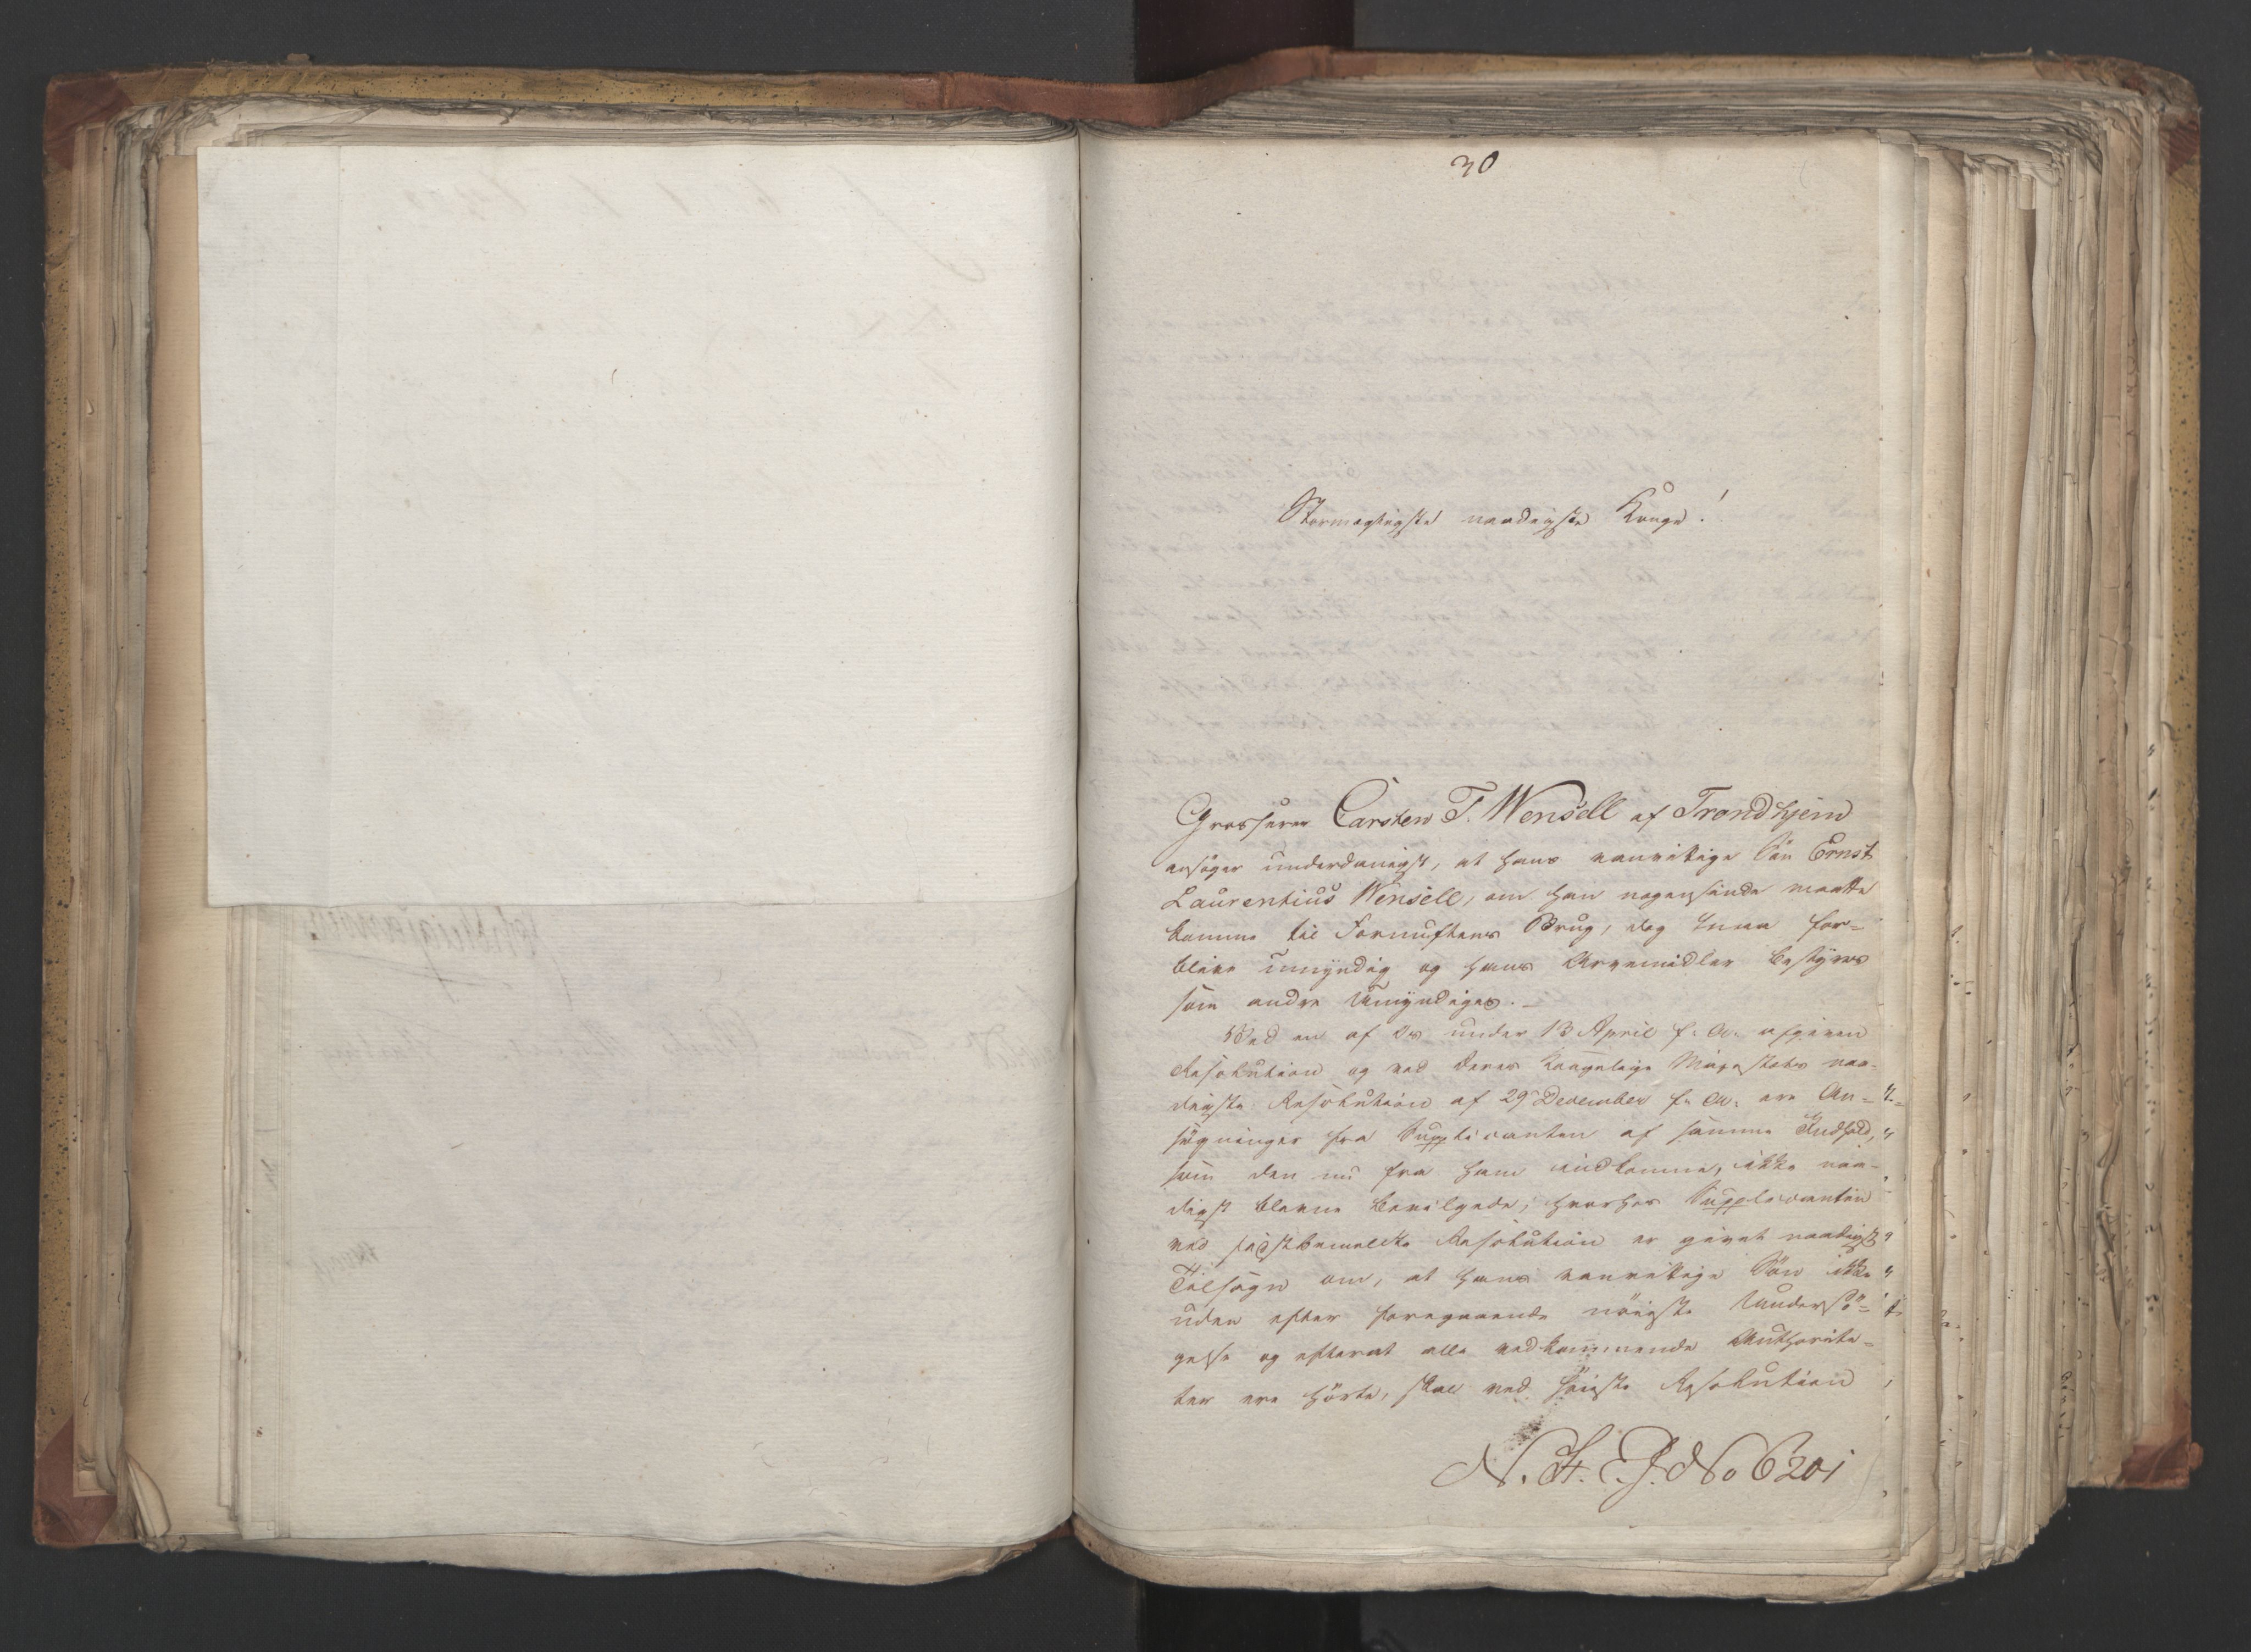 30
Stormægtigste naadigste Konge!
Grosserer Carsten F. Wensell af Trondhjem
ansöger underdanigst, at hans vanvittige Sön Ernst
Laurentius Wensell, om han nogensinde maatte
komme til Fornuftens Brug, dog maa for-
blive umyndig og hans Arvemidler bestyres
som andre Umyndiges.
Ved en af Os under 13 April f. A. afgiven
Resolution og ved Deres Kongelige Majestæts naa-
digste Resolution af 29 December f. A. ere An-
sögninger fra Supplicanten af samme Indhold,
som den nu fra ham indkomne, ikke naa-
digst blevne bevilgede, hvorhos Supplicanten
ved sidstbemeldte Resolution er givet naadigst
Tilsagn om, at hans vanvittige Sön ikke
uden efter foregaaende nöieste Undersö-
gelse og efterat alle vedkommende Authorite-
ter ere hörte, skal ved höieste Resolution
N. F. J. No 6201